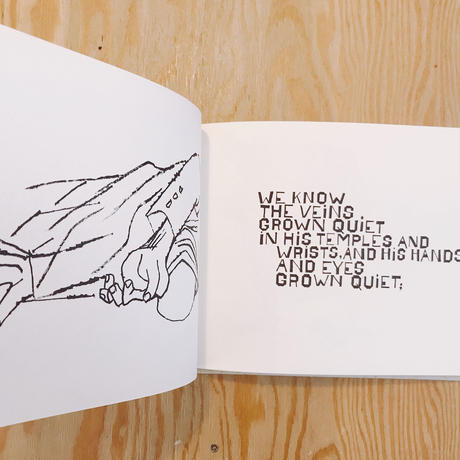 WE KNOW
THE VEINS
GROWN QUIET
IN HIS TEMPLES AND
WRISTS, AND HIS HANDS
AND EYES
GROWN QUIET;